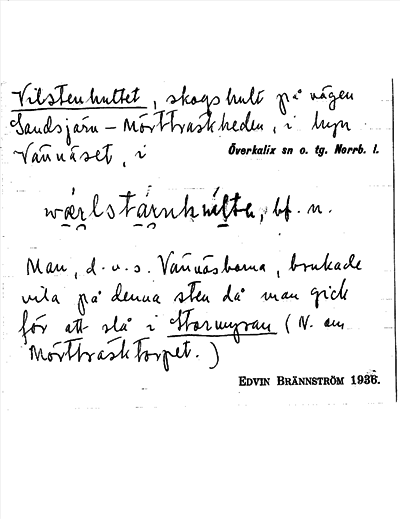 Vilstenhultet, skogshult på vägen
Sandsjärn – Mörtträskheden, i byn
Vännäset, i Överkalix sn o. tg. Norrb. l.
bf. n.
Man, d.v.s. Vännäsborna, brukade
vila på denna sten då man gick
för att slå i Stormyran (N. om
Mörtträsktorpet.)
EDVIN BRÄNNSTRÖM 1936.